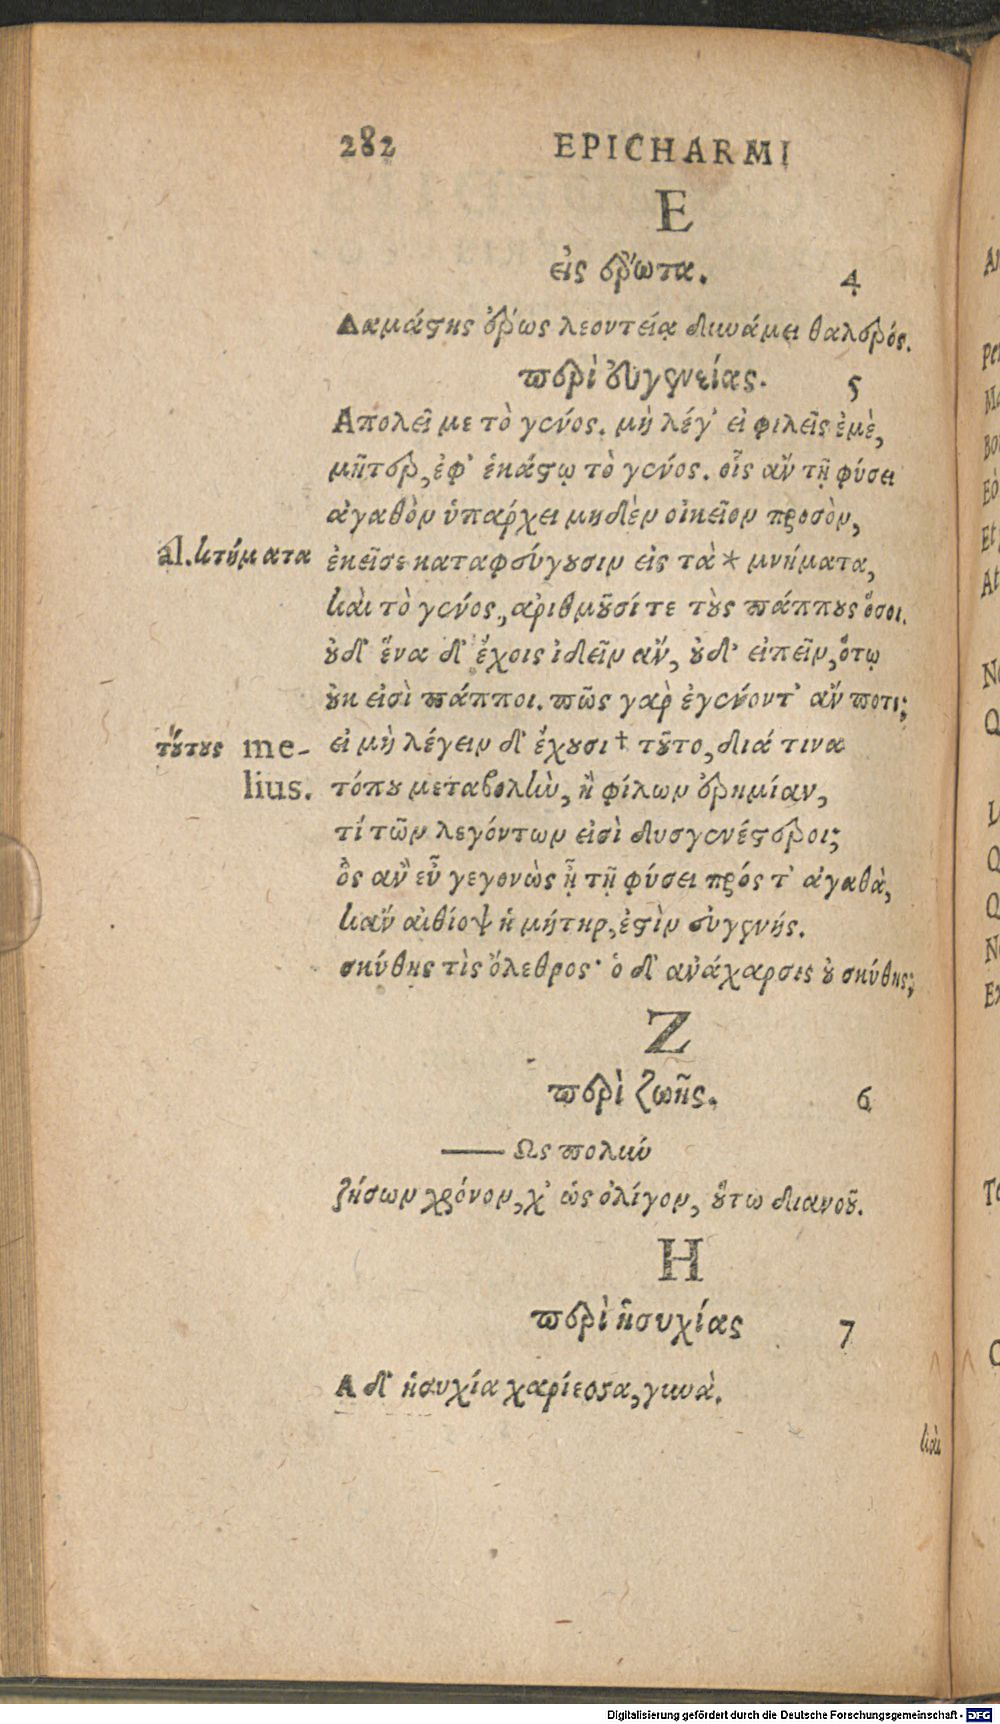 282 EPICHARMI
Ε
εἰς ἔρωτα. 4
Δαμάστης ἔρως λεοντείᾳ δυνάμει θαλερός.
περὶ εὐγενείας. 5
Απολεῖ με τὸ γένος. μὴ λέγ' εἰ φιλεῖς ἐμὲ,
μῆτερ, ἐφ' ἑκάστῳ τὸ γένος. οἷς ἂν τῇ φύσει
ἀγαθὸν ὑπάρχει μηδὲν οἰκεῖον προσὸν,
al. κτήματα ἐκεῖσε καταφεύγουσιν εἰς τὰ * μνήματα,
καὶ τὸ γένος, ἀριθμοῦσί τε τοὺς πάππους ὅσοι.
οὐδ' ἕνα δ' ἔχοις ἰδεῖν ἂν, οὐδ' εἰπεῖν, ὅτῳ
οὐκ εἰσὶ πάπποι. πῶς γὰρ ἐγένοντ' ἄν ποτε;
τούτους me- εἰ μὴ λέγειν δ' ἔχουσι † τοῦτο, διά τινα
lius. τόπου μεταβολὴν, ἢ φίλων ἐρημίαν,
τί τῶν λεγόντων εἰσὶ δυσγενέστεροι;
ὃς ἂν εὖ γεγονὼς ᾖ τῇ φύσει πρός τ' ἀγαθὰ,
κἂν αἰθίοψ ἡ μήτηρ, ἐστὶν εὐγενής.
σκύθης τὶς ὄλεθρος· ὁ δ' ἀνάχαρσις οὐ σκύθης;
Ζ
περὶ ζωῆς. 6
—— Ως πολὺν
ζήσων χρόνον, χ' ὡς ὀλίγον, οὕτω διανοοῦ.
Η
περὶ ἡσυχίας 7
Α δ' ἡσυχία χαρίεσσα, γυνὰ.
καὶ
Digitalisierung gefördert durch die Deutsche Forschungsgemeinschaft - DFG